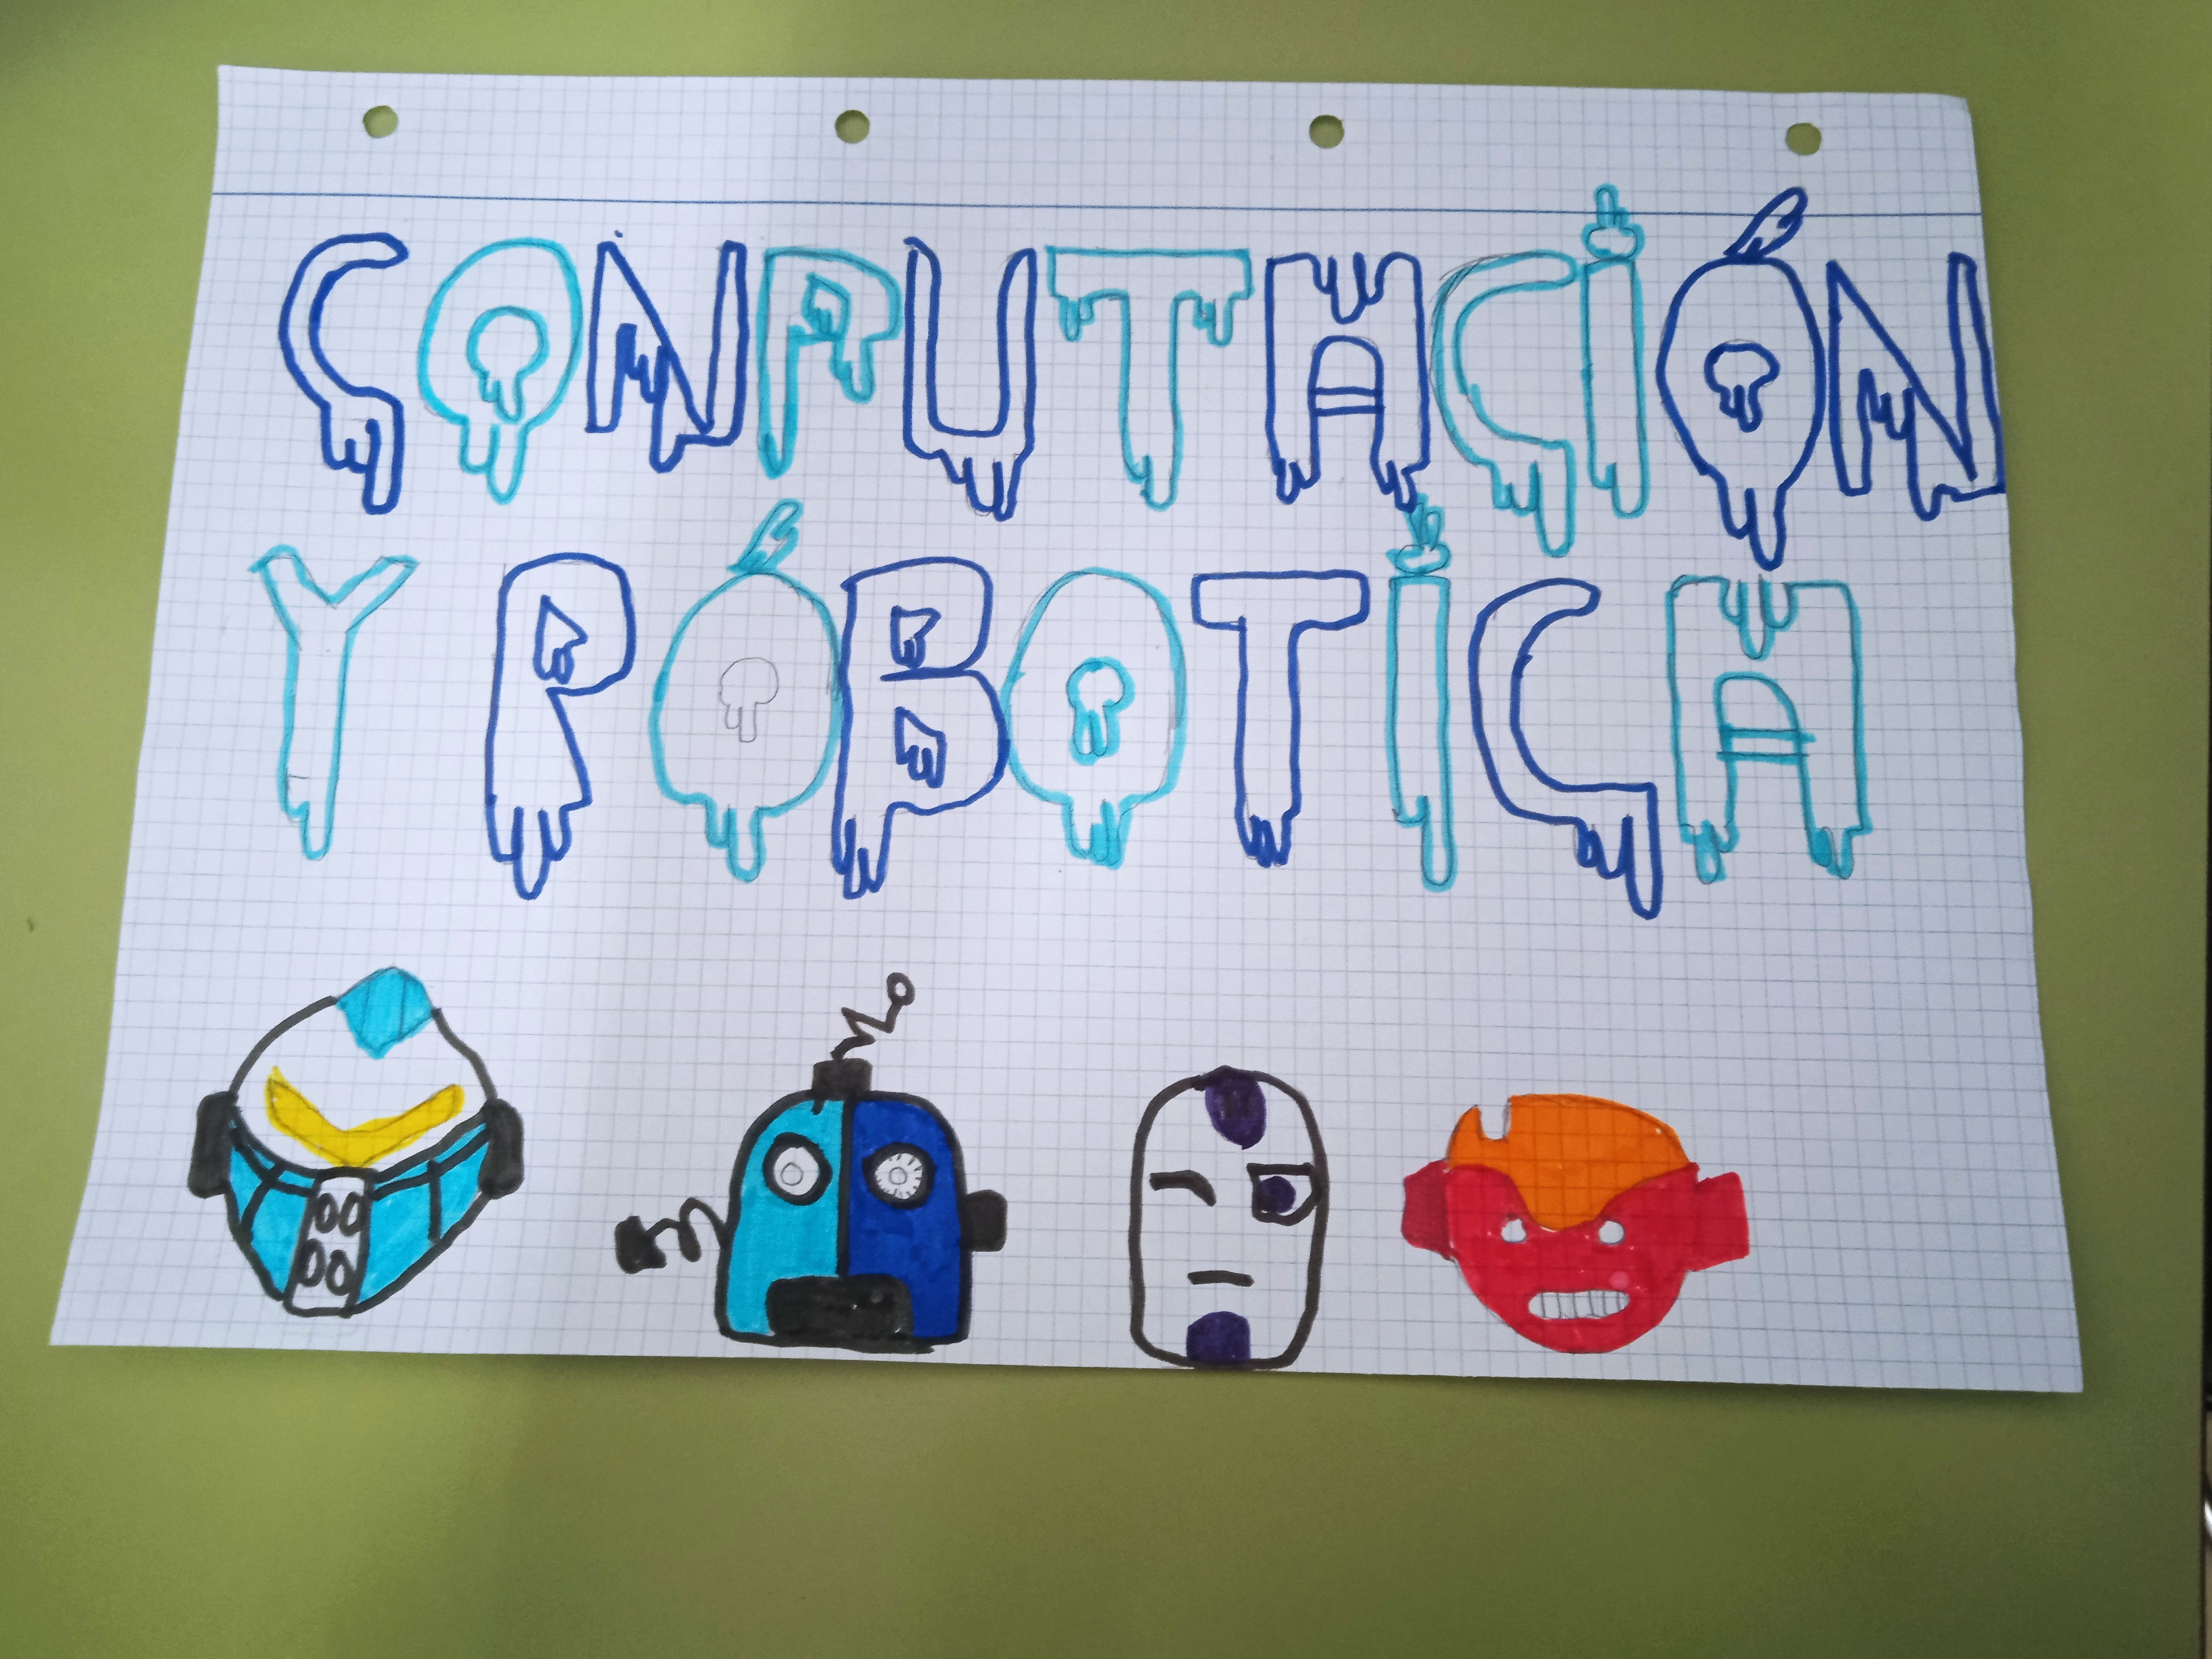 CONPUTACIÓN
Y RÓBOTICA